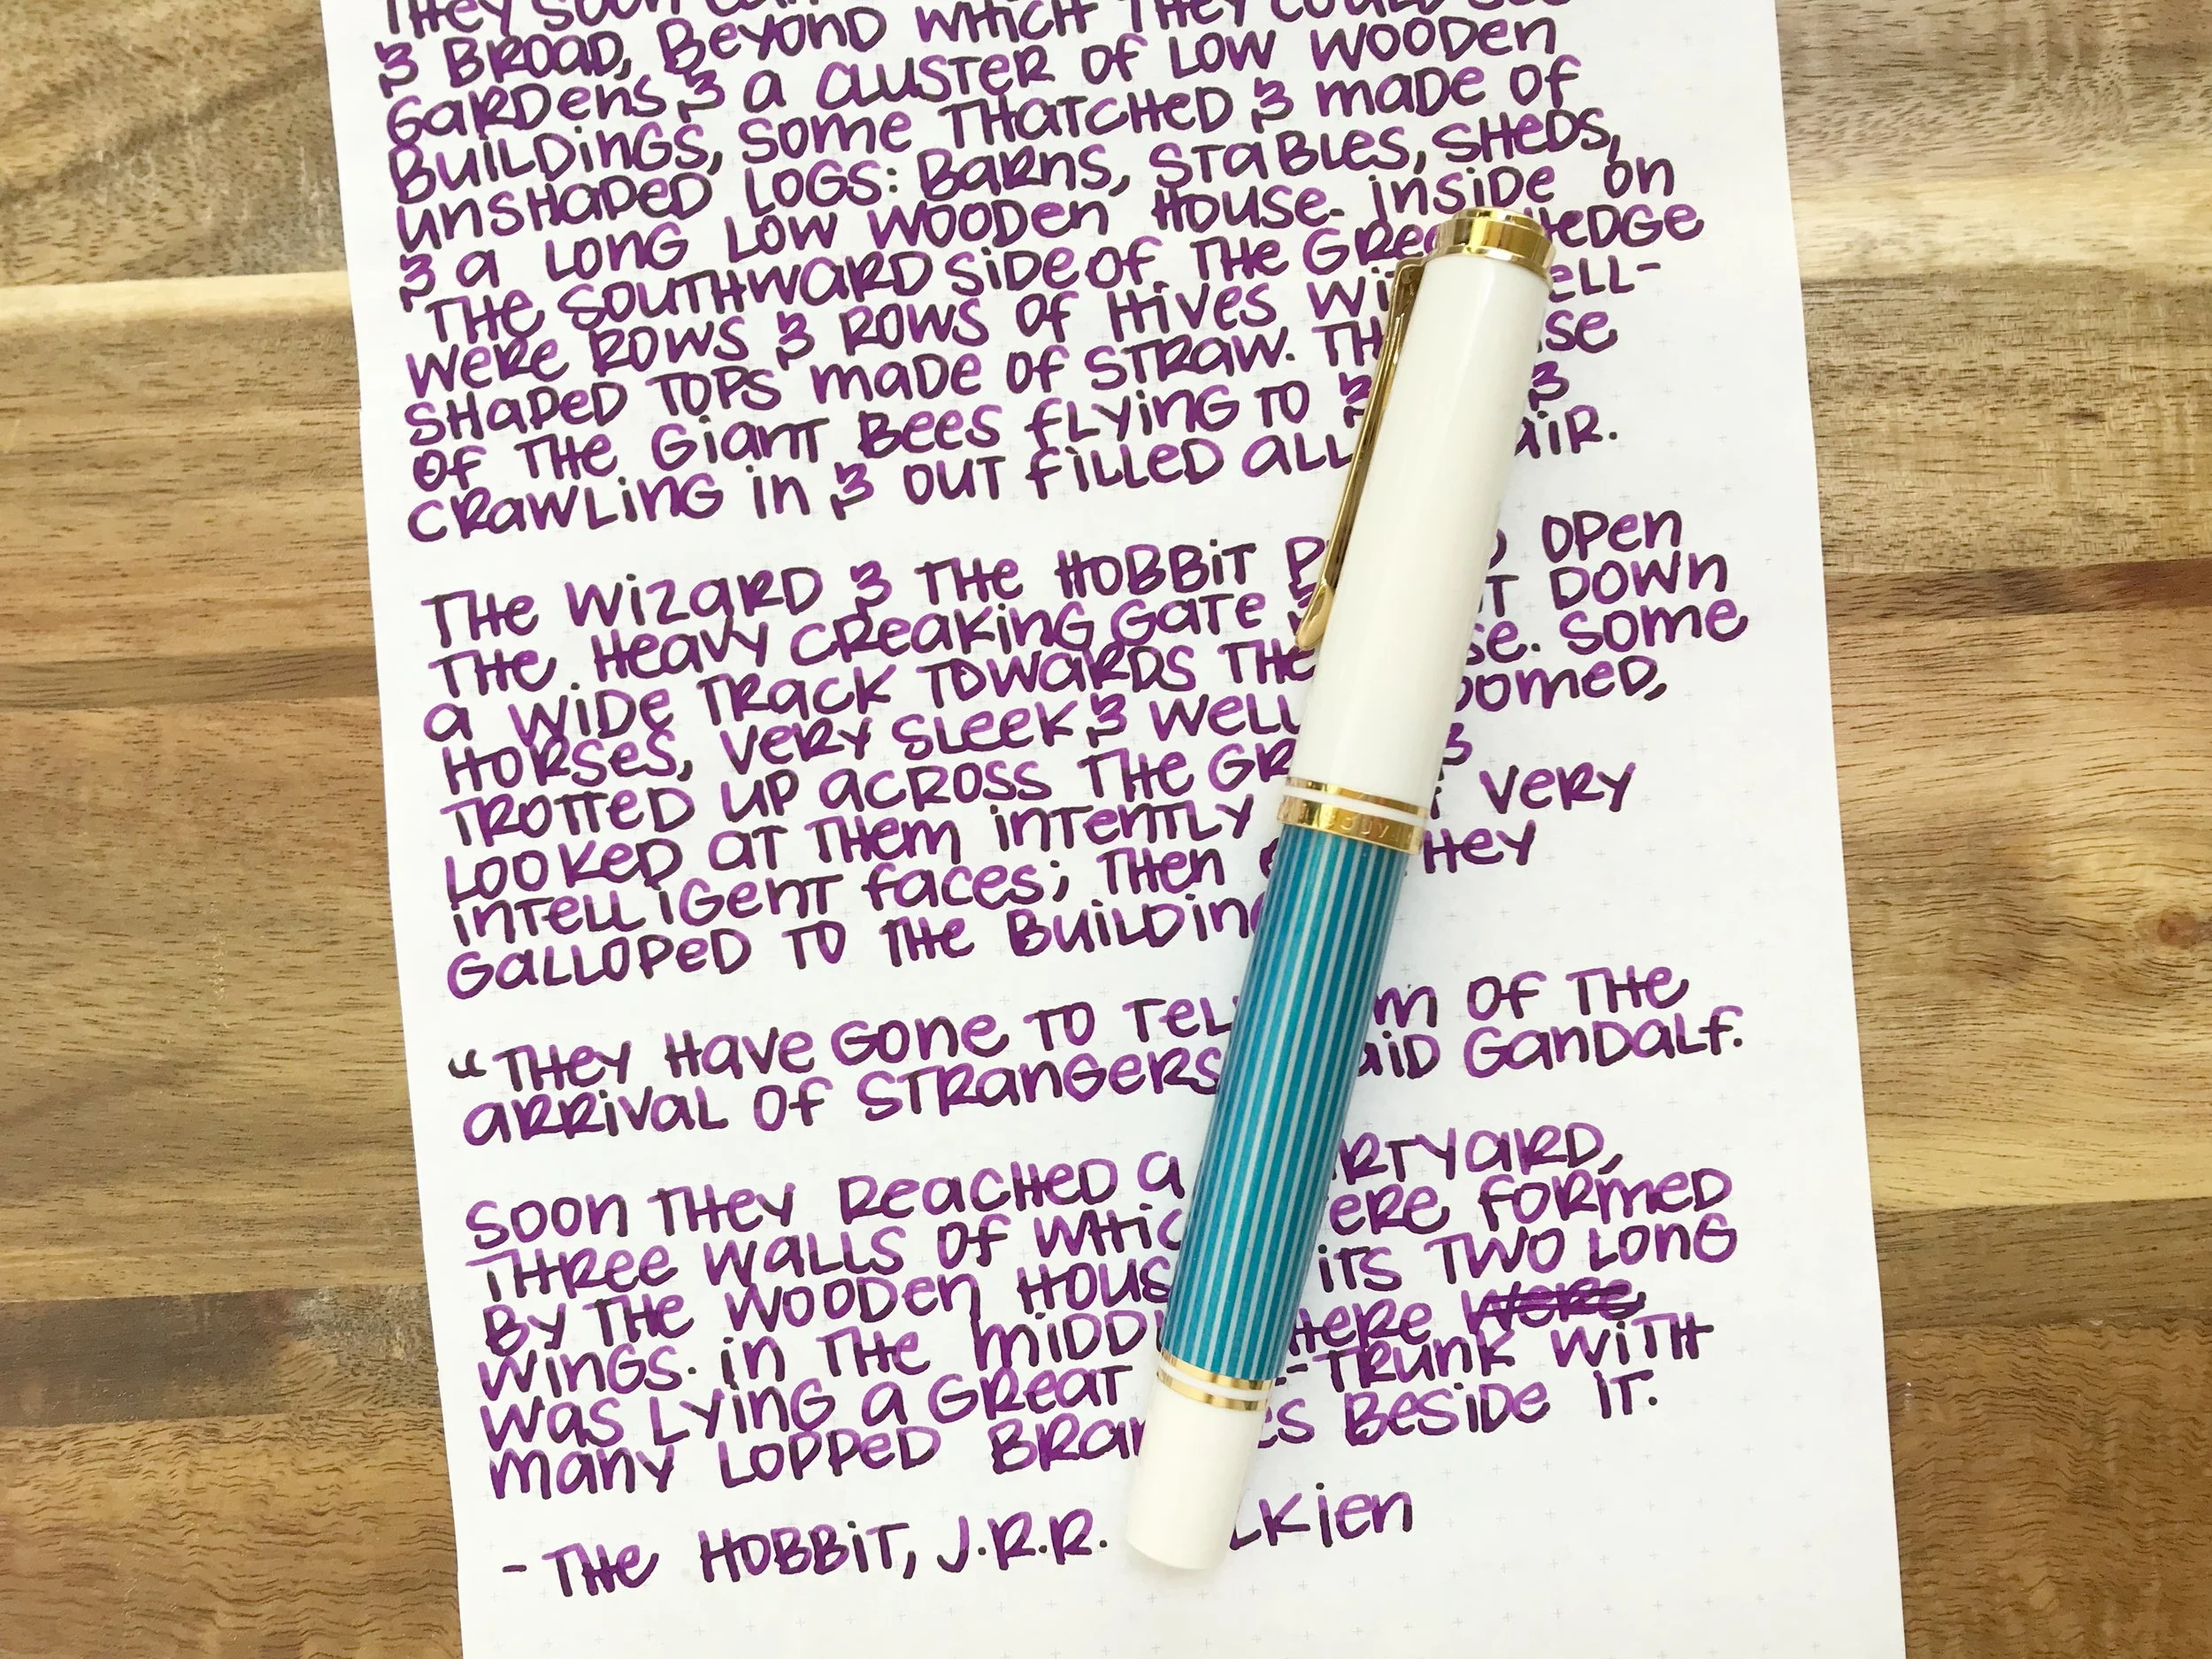 THEY SOON
& BROAD, BEYOND WHICH THEY COULD SEE
GARDENS & A CLUSTER OF LOW WOODEN
BUILDINGS, SOME THATCHED & MADE OF
UNSHAPED LOGS: BARNS, STABLES, SHEDS,
& A LONG LOW WOODEN HOUSE. INSIDE ON
THE SOUTHWARD SIDE OF THE GREA HEDGE
WERE ROWS & ROWS OF HIVES WI ELL-
SHAPED TOPS MADE OF STRAW. TH SE
OF THE GIANT BEES FLYING TO & &
CRAWLING IN & OUT FILLED ALL AIR.
THE WIZARD & THE HOBBIT P D OPEN
THE HEAVY CREAKING GATE & T DOWN
A WIDE TRACK TOWARDS THE SE. SOME
HORSES, VERY SLEEK & WELL OOMED,
TROTTED UP ACROSS THE GR &
LOOKED AT THEM INTENTLY VERY
INTELLIGENT FACES; THEN HEY
GALLOPED TO THE BUILDING
"THEY HAVE GONE TO TEL M OF THE
ARRIVAL OF STRANGERS AID GANDALF.
SOON THEY REACHED A RTYARD,
THREE WALLS OF WHIC ERE FORMED
BY THE WOODEN HOUS ITS TWO LONG
WINGS. IN THE MIDD HERE WERE
WAS LYING A GREAT -TRUNK WITH
MANY LOPPED BRAN ES BESIDE IT.
- THE HOBBIT, J.R.R. LKIEN